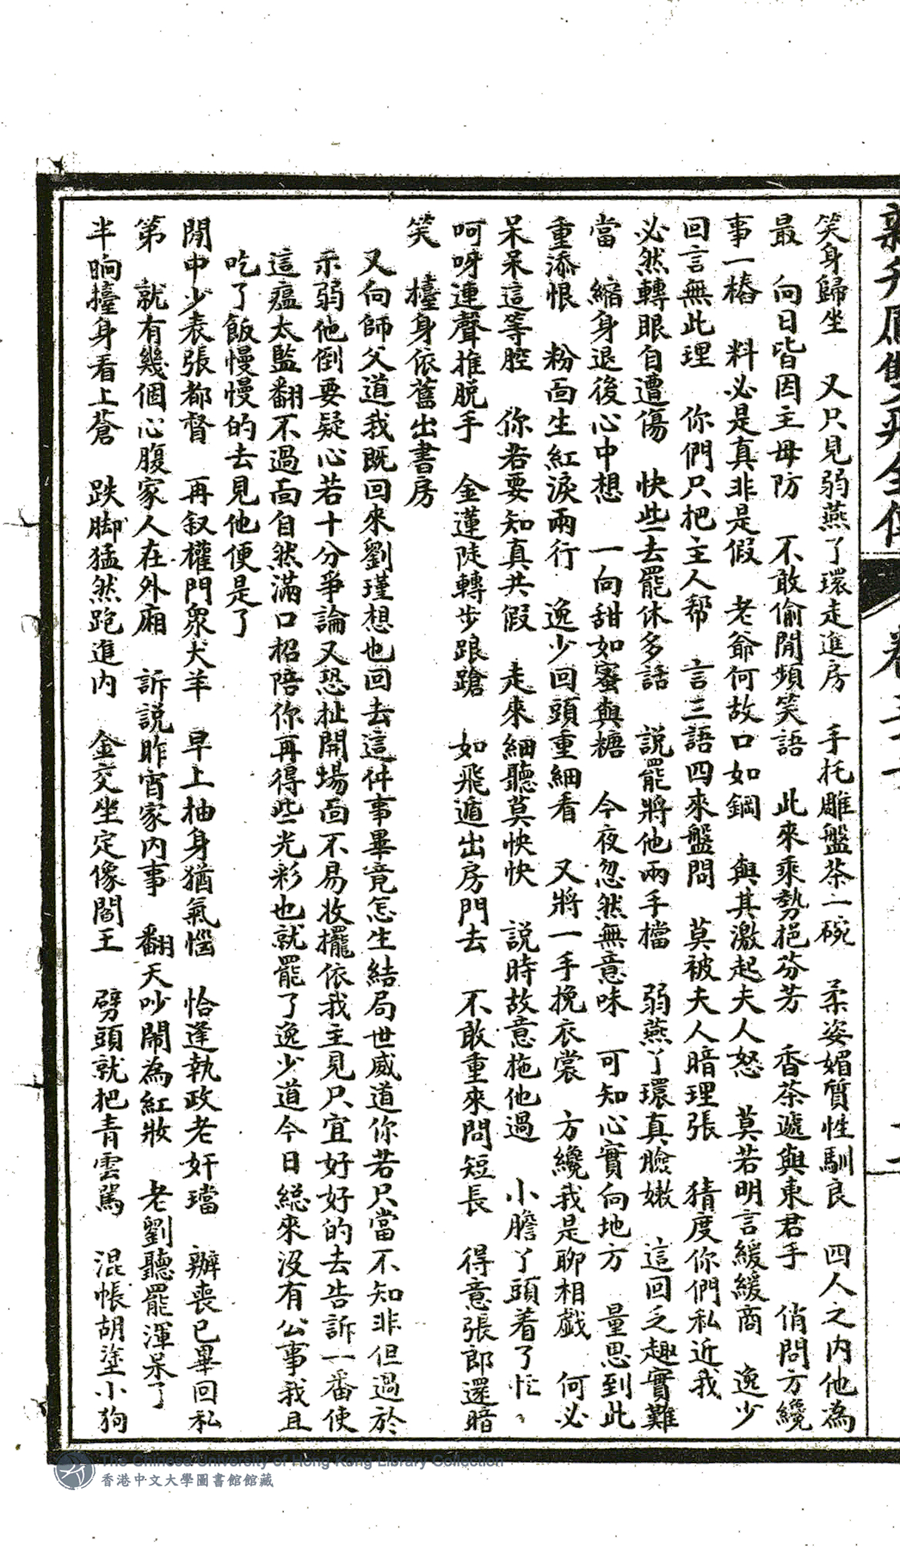 新先鳳雙飛全傳 卷三十
笑身歸坐 又只見弱燕丫環走進房 手托雕盤茶一碗 柔姿媚質性馴良 四人之内他為
最 向日皆因主母防 不敢偷閒頻笑語 此來乘勢挹芬芳 香茶遞與東君手 俏問方纔
事一樁 料必是真非是假 老爺何故口如鋼 與其激起夫人怒 莫若明言緩緩商 逸少
回言無此理 你們只把主人帮 言三語四來盤問 莫被夫人暗理張 猜度你們私近我
必然轉眼自遭傷 快些去罷休多話 說罷將他兩手擋 弱燕丫環真臉嫩 這回乏趣實難
當 縮身退後心中想 一向甜如蜜與糖 今夜忽然無意味 可知心實向地方 量思到此
重添恨 粉面生紅淚兩行 逸少回頭重細看 又將一手挽衣裳 方纔我是聊相戲 何必
呆呆這等腔 你若要知真共假 走來細聽莫怏怏 說時故意拖他過 小膽丫頭着了忙
呵呀連聲推脱手 金蓮陡轉步踉蹌 如飛遁出房門去 不敢重來問短長 得意張郎還暗
笑 擡身依舊出書房
又向師父道我既回來劉瑾想也回去這件事畢竟怎生結局世威道你若只當不知非但過於
示弱他倒要疑心若十分爭論又恐扯開場面不易收擺依我主見只宜好好的去告訴一番使
這瘟太監翻不過面自然滿口招陪你再得些光彩也就罷了逸少道今日総來没有公事我且
吃了飯慢慢的去見他便是了
閒中少表張都督 再叙權門衆犬羊 早上抽身猶氣惱 恰逢執政老奸璫 辦喪已畢回私
第 就有幾個心腹家人在外廂 訴説昨宵家内事 翻天吵鬧為紅妝 老劉聽罷渾呆了
半晌擡身看上蒼 跌脚猛然跑進内 金交坐定像閻王 劈頭就把青雲罵 混帳胡塗小狗
The Chinese University of Hong Kong Library Collection
香港中文大學圖書館館藏